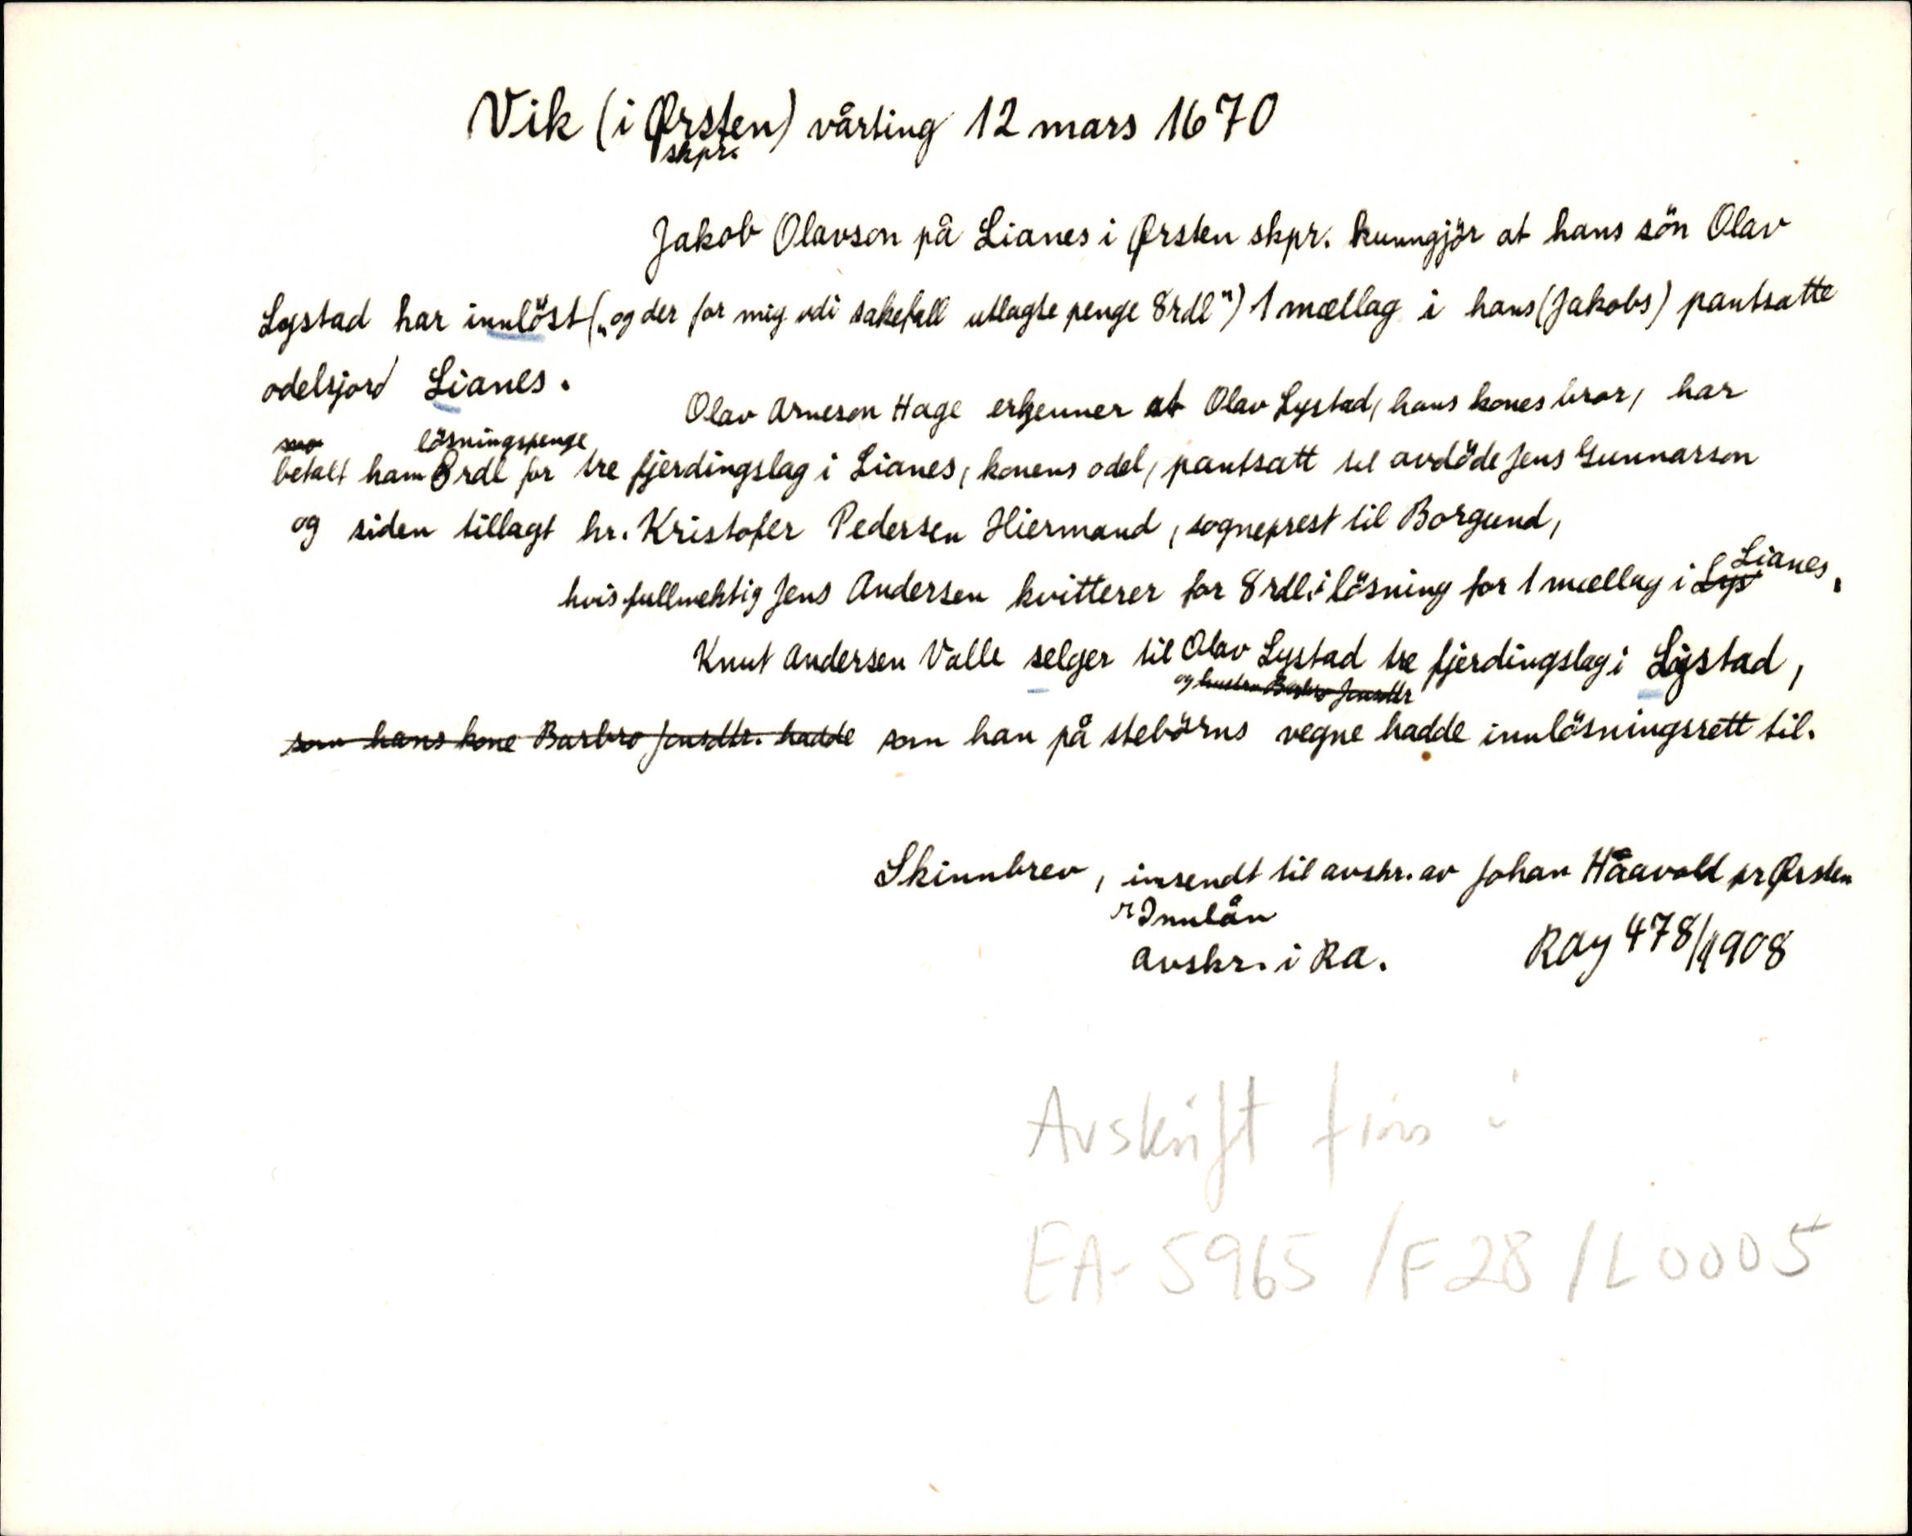 Vik (i Ørsten) vårting 12 mars 1670
skpr.
Jakob Olavson på Lianes i Ørsten skpr. kunngjör at hans sön Olav
Lystad har innlöst („og der for mig udi sakefall utlagte penge 8 rdl") 1 mællag i hans (Jakobs) pantsatte
odelsjord Lianes.
Olav Arneson Hage erkjenner at Olav Lystad, hans kones bror, har
lösningspenge
betalt ham 8 rdl for tre fjerdingslag i Lianes, konens odel, pantsatt til avdöde Jens Gunnarson
og siden tillagt hr. Kristofer Pedersen Hiermand, sogneprest til Borgund,
hvis fullmektig Jens Andersen kvitterer for 8 rdl. i lösning for 1 mællag i Lys Lianes.
Knut Andersen Valle selger til Olav Lystad tre fjerdingslag i Lystad,
og hustru Barbro Jensdtr
som hans kone Barbro Jensdtr. hadde som han på stebörns vegne hadde innlösningsrett til.
Skinnbrev, innsendt til avskr. av Johan Håavold pr Ørsten
Innlån
avskr. i RA.
RAy 478/1908
Avskrift fins i
EA-5965/F28/L0005